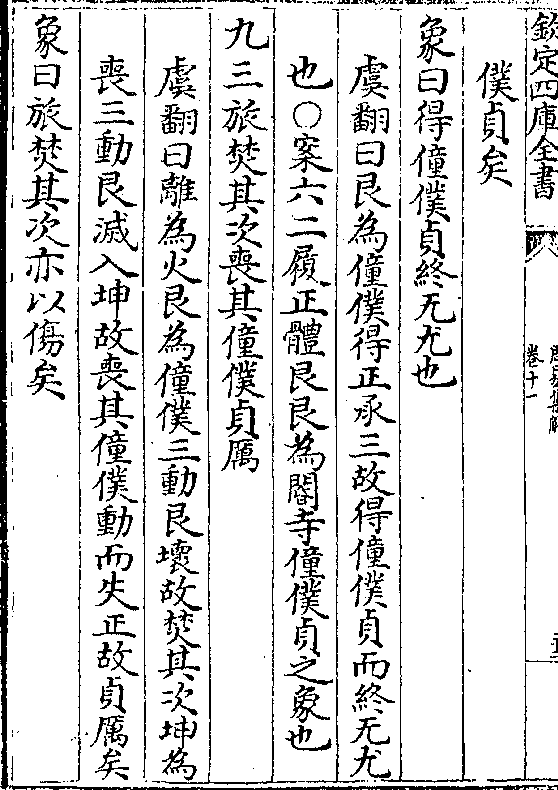 欽定四庫全書
卷十一
僕貞矣
象曰得僮僕貞終无尤也
虞翻曰艮為僮僕得正承三故得僮僕貞而終无尤
也○案六二履正體艮艮為閽寺僮僕貞之象也
九三旅焚其次喪其僮僕貞厲
虞翻曰離為火艮為僮僕三動艮壞故焚其次坤為
喪三動艮滅入坤故喪其僮僕動而失正故貞厲矣
象曰旅焚其次亦以傷矣